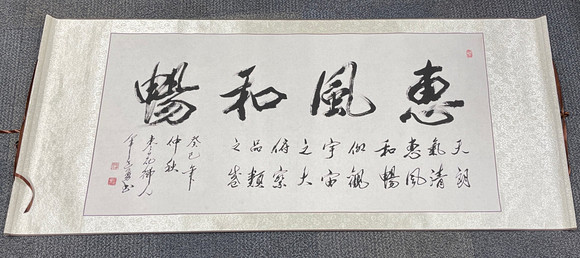 惠風和暢
天朗
氣清
惠風
和暢
仰觀
宇宙
之大
俯察
品類
之盛
癸巳年
仲秋
書